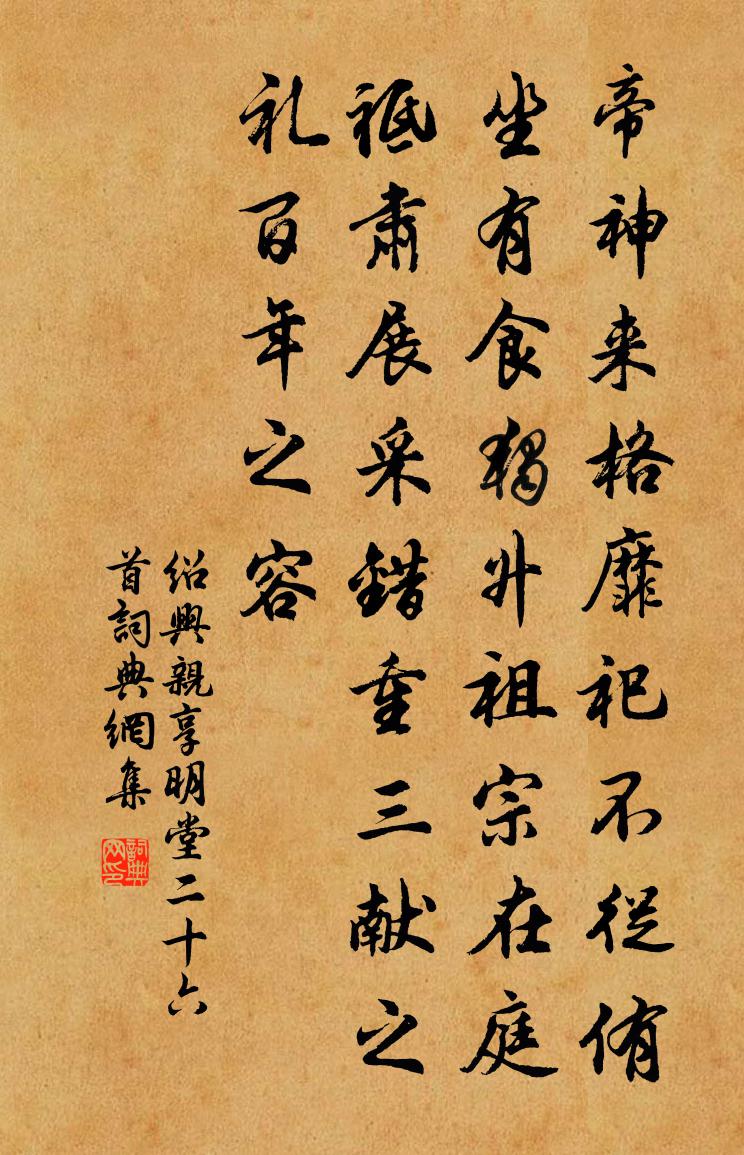 帝神来格靡祀不從侑
坐有食獨升祖宗在庭
祗肅展采錯重三献之
礼百年之容
绍興親享明堂二十六
首詞典網集
詞典
网印